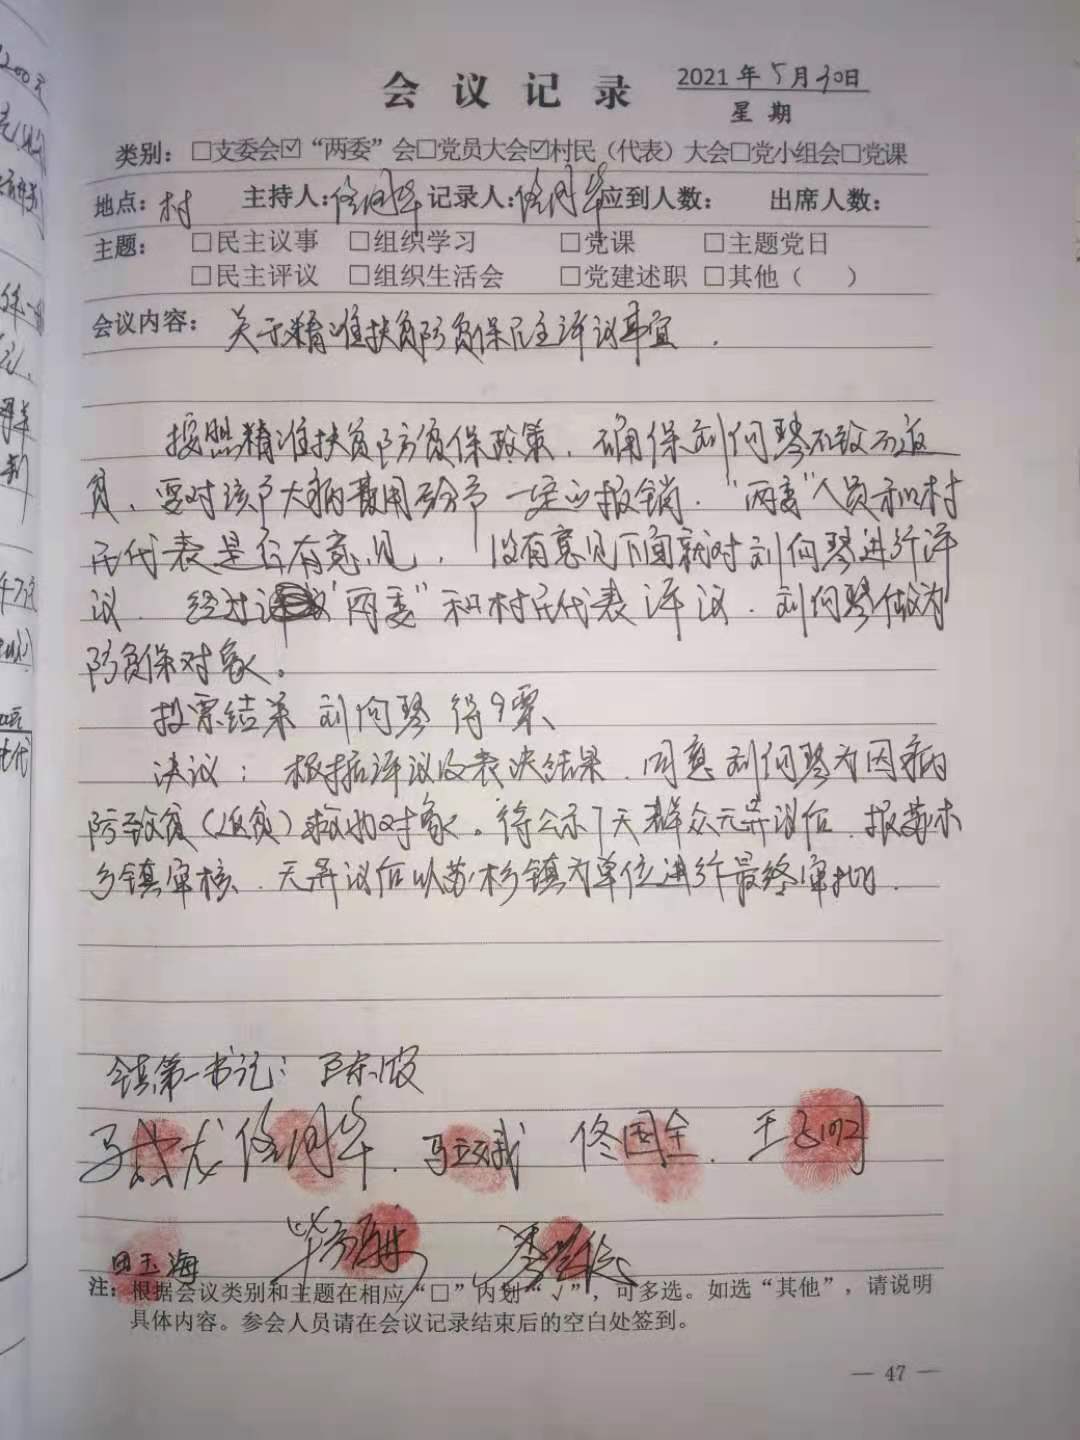 会 议 记 录
2021 年 5 月 30 日
星 期
类别：□支委会☑“两委”会□党员大会☑村民（代表）大会□党小组会□党课
地点：村 主持人：佟国华 记录人：佟国华 应到人数： 出席人数：
主题： □民主议事 □组织学习 □党课 □主题党日
□民主评议 □组织生活会 □党建述职 □其他（ ）
会议内容：关于精准扶贫防贫保民主评议事宜.
按照精准扶贫防贫保政策，确保刘何琴不致不返
贫，要对该户大病费用 一定的报销，“两委”人员和村
民代表是否有意见，没有意见下面就对刘何琴进行评
议. 经过“两委”和村民代表评议. 刘何琴做为
防贫保对象。
投票结果 刘何琴 得9票、
决议：根据评议及表决结果，同意刘何琴为因病
防致贫（返贫）救助对象。待公示7天群众无异议后，报苏木
乡镇审核、无异议后以苏木乡镇为单位进行最终审批.
镇第一书记：
佟国华
马立斌
佟国全.
田玉海
注：根据会议类别和主题在相应“□”内划“√”，可多选。如选“其他”，请说明
具体内容。参会人员请在会议记录结束后的空白处签到。
— 47 —